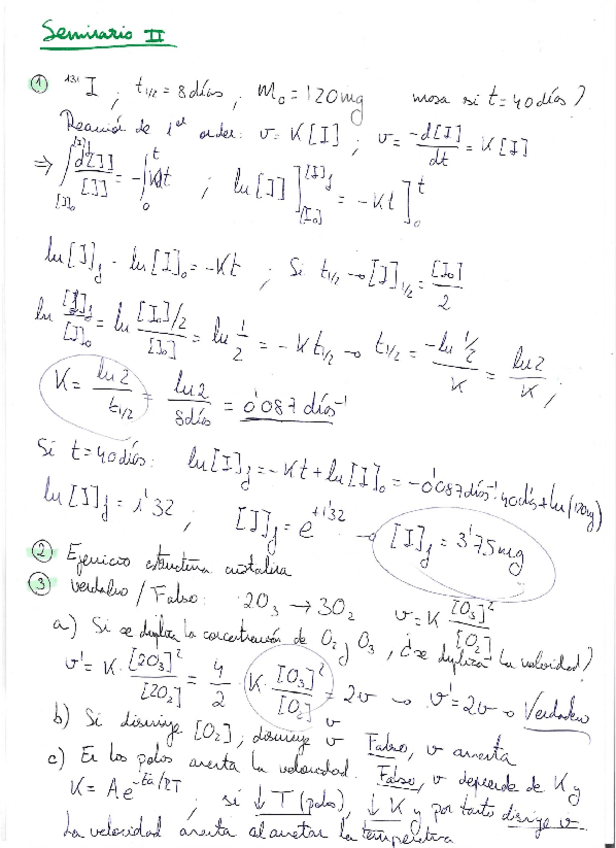 Seminario II
① ¹³¹I ; t₁/₂ = 8 días ; m₀ = 120 mg masa si t = 40 días?
Reacción de 1er orden: v = K[I] ; v = -d[I]/dt = K[I]
⇒ ∫ d[I]/[I] = -∫₀ᵗ Kdt ; ln[I] ] [I₀] [I]f = -Kt ]₀ᵗ
ln[I]f - ln[I]₀ = -Kt ; Si t₁/₂ → [I]₁/₂ = [I₀]/2
ln [I]f/[I]₀ = ln [I₀]/2/[I₀] = ln 1/2 = -K t₁/₂ → t₁/₂ = -ln 1/2 / K = ln2/K ;
K = ln2/t₁/₂ = ln2/8días = 0'087 días⁻¹
Si t = 40 días: ln[I]f = -Kt + ln[I]₀ = -0'087 días⁻¹ 40 días + ln(120mg)
ln[I]f = 1'32 ; [I]f = e^+1'32 → [I]f = 3'75 mg
② Ejercicio estructura cristalina
③ Verdadero / Falso: 2O₃ → 3O₂ v = K [O₃]²/[O₂]
a) Si se duplica la concentración de O₂ y O₃, ¿se duplica la velocidad?
v' = K · [2O₃]²/[2O₂] = 4/2 (K · [O₃]²/[O₂]) = 2v → v' = 2v → Verdadero
v
b) Si disminuye [O₂], disminuye v Falso, v aumenta
c) En los polos aumenta la velocidad. Falso, v depende de K y
K = A e^-Ea/RT ; si ↓T (polos), ↓K y por tanto disminuye v.
La velocidad aumenta al aumentar la temperatura